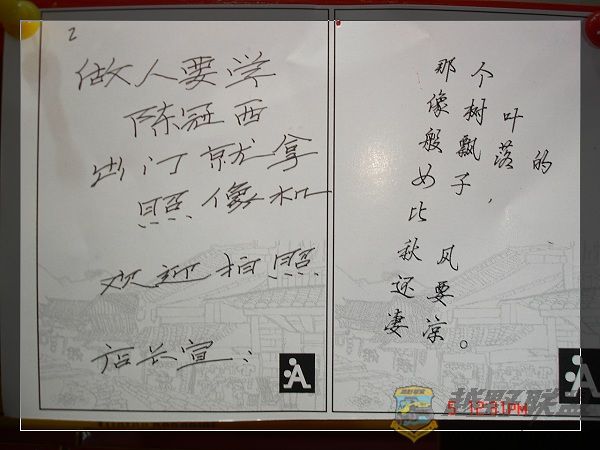 2
做人要学
陈冠西
出门就拿
照像机
欢迎拍照
店长宣:
那个
像树叶
般飘落的
女子,
比
秋风
还要
凄凉。
A
A
越野联盟
5 12:31PM